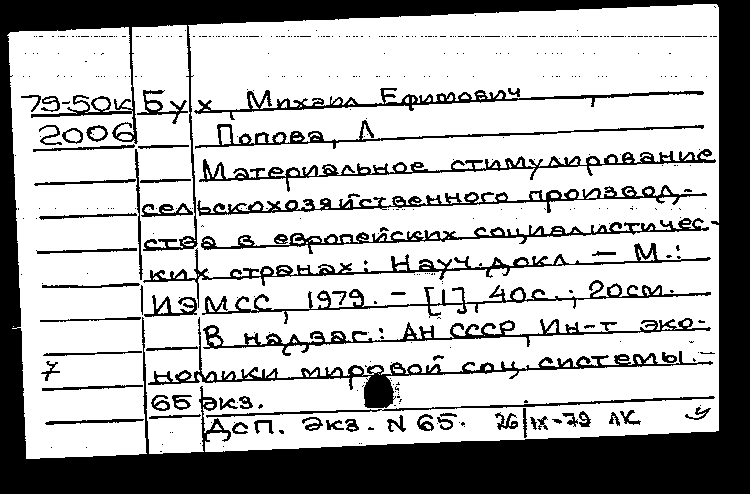 79-50к Бух, Михаил Ефимович,
2006 Попова, Л
Материальное стимулирование
сельскохозяйственного производ-
ства в европейских социалистичес-
ких странах: Науч. докл. — М.:
ИЭМСС, 1979. - [1], 40с.; 20см.
В надзаг.: АН СССР, Ин-т эко-
7 номики мировой соц. системы. -
65 экз.
ДСП. Экз. N 65. 26/IX-79 ЛК